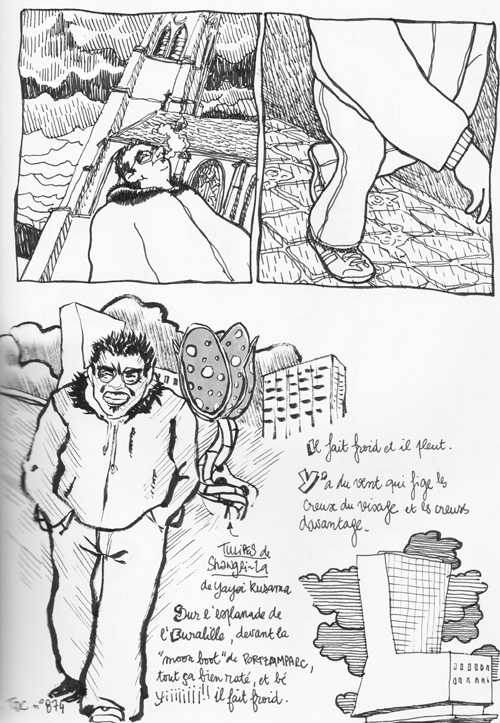 Il fait froid et il pleut.
Y'a du vent qui fige les
creux du visage et les creuse
davantage.
TULIPES de
Shangri-La
de Yayoi Kusama
Sur l'esplanade de
l'Euralille, devant la
"moon boot" de PORTZAMPARC,
tout ça bien raté, et bé
Yiiiiiiii!! il fait froid.
n°874